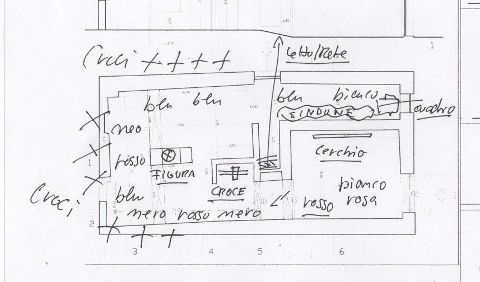 Croci
letto/rete
blu
blu
blu
bianco
SINDONE
quadro
neo
rosso
FIGURA
CROCE
cerchio
bianco
rosa
Croci
blu
nero rosso nero
rosso
1
2
3
4
5
6